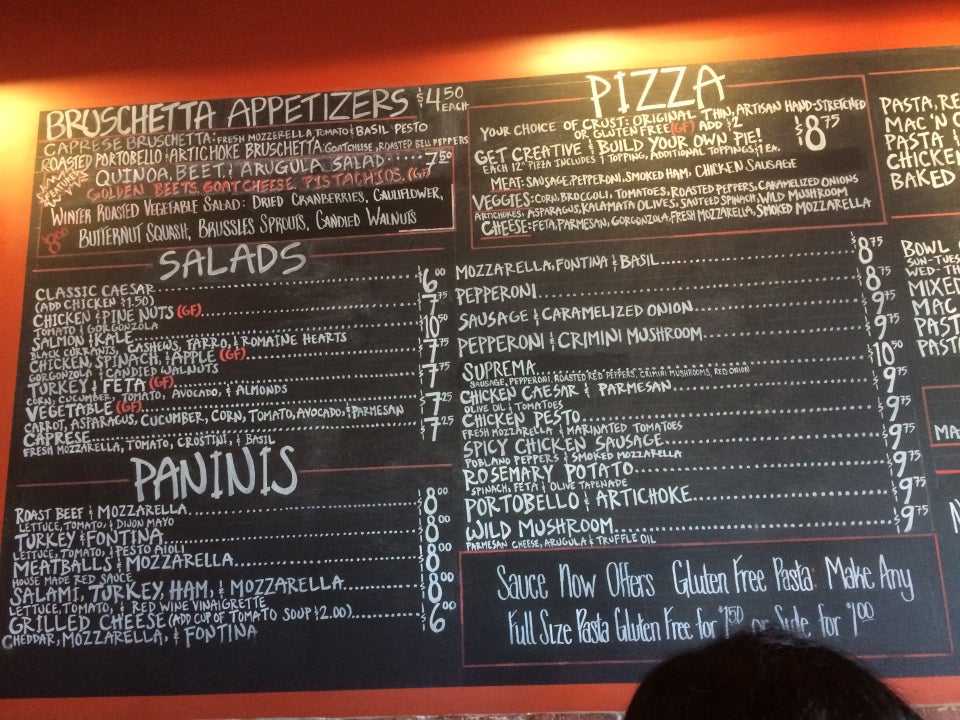 BRUSCHETTA APPETIZERS $4.50 EACH
CAPRESE BRUSCHETTA: FRESH MOZZERELLA, TOMATO & BASIL PESTO
ROASTED PORTOBELLO & ARTICHOKE BRUSCHETTA: GOAT CHEESE, ROASTED BELL PEPPERS
FEATURED
QUINOA, BEET, & ARUGULA SALAD.....7.50
GOLDEN BEETS, GOAT CHEESE, PISTACHIOS, (GF)
WINTER ROASTED VEGETABLE SALAD: DRIED CRANBERRIES, CAULIFLOWER,
8.00 BUTTERNUT SQUASH, BRAUSSLES SPROUTS, CANDIED WALNUTS
SALADS
CLASSIC CAESAR..........$6.00
(ADD CHICKEN $1.50)
CHICKEN & PINE NUTS (GF)..........$7.75
TOMATO & GORGONZOLA
SALMON & KALE..........$10.50
BLACK CURRANTS, CASHEWS, FARRO, & ROMAINE HEARTS
CHICKEN, SPINACH, & APPLE (GF)..........$7.75
GORGONZOLA & CANDIED WALNUTS
TURKEY & FETA (GF)..........$7.75
CORN, CUCUMBER, TOMATO, AVOCADO, & ALMONDS
VEGETABLE (GF)..........$7.25
CARROT, ASPARAGUS, CUCUMBER, CORN, TOMATO, AVOCADO, & PARMESAN
CAPRESE..........$7.25
FRESH MOZZARELLA, TOMATO, CROSTINI, & BASIL
PANINIS
ROAST BEEF & MOZZARELLA..........$8.00
LETTUCE, TOMATO, & DIJON MAYO
TURKEY & FONTINA..........$8.00
LETTUCE, TOMATO, & PESTO AIOLI
MEATBALLS & MOZZARELLA..........$8.00
HOUSE MADE RED SAUCE
SALAMI, TURKEY, HAM, & MOZZARELLA..........$8.00
LETTUCE, TOMATO, & RED WINE VINAIGRETTE
GRILLED CHEESE (ADD CUP OF TOMATO SOUP $2.00)..........$6.00
CHEDDAR, MOZZARELLA, & FONTINA
PIZZA
YOUR CHOICE OF CRUST: ORIGINAL THIN, ARTISAN HAND-STRETCHED
OR GLUTEN FREE (GF) ADD $2 $8.75
GET CREATIVE & BUILD YOUR OWN PIE!
EACH 12" PIZZA INCLUDES 1 TOPPING, ADDITIONAL TOPPINGS $1 EA.
MEAT: SAUSAGE, PEPPERONI, SMOKED HAM, CHICKEN SAUSAGE
VEGGIES: CORN, BROCCOLI, TOMATOES, ROASTED PEPPERS, CARAMELIZED ONIONS
ARTICHOKES, ASPARAGUS, KALAMATA OLIVES, SAUTEED SPINACH, WILD MUSHROOM
CHEESE: FETA, PARMESAN, GORGONZOLA, FRESH MOZZARELLA, SMOKED MOZZARELLA
MOZZARELLA, FONTINA & BASIL..........$8.75
PEPPERONI..........$8.75
SAUSAGE & CARAMELIZED ONION..........$9.75
PEPPERONI & CRIMINI MUSHROOM..........$9.75
SUPREMA..........$10.50
SAUSAGE, PEPPERONI, ROASTED RED PEPPERS, CRIMINI MUSHROOMS, RED ONION
CHICKEN CAESAR & PARMESAN..........$9.75
OLIVE OIL & TOMATOES
CHICKEN PESTO..........$9.75
FRESH MOZZARELLA & MARINATED TOMATOES
SPICY CHICKEN SAUSAGE..........$9.75
POBLANO PEPPERS & SMOKED MOZZARELLA
ROSEMARY POTATO..........$9.75
SPINACH, FETA & OLIVE TAPENADE
PORTOBELLO & ARTICHOKE..........$9.75
WILD MUSHROOM..........$9.75
PARMESAN CHEESE, ARUGULA & TRUFFLE OIL
Sauce Now Offers Gluten Free Pasta: Make Any
Full Size Pasta Gluten Free for $1.50 or Side for $1.00
PASTA, RE
MAC 'N C
PASTA
CHICKEN
BAKED
BOWL
SUN-TUES
WED-TH
MIXED
MAC
PAST
PAST
MA